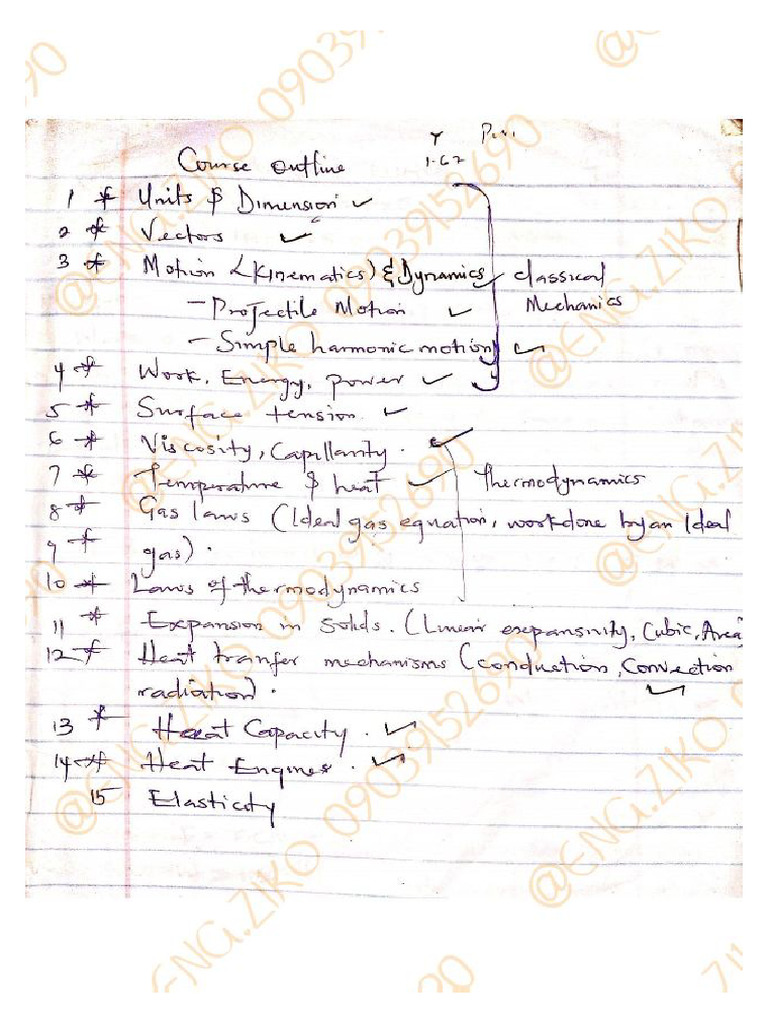 Course outline
1.62
1 * Units & Dimension ✓
2 * Vectors ✓
3 * Motion <Kinematics) & Dynamics classical
Mechanics
- Projectile Motion ✓
- Simple harmonic motion ✓
4 * Work, Energy, power ✓
5 * Surface tension ✓
6 * Viscosity, Capillarity. ✓
7 * Temperature & heat ✓ thermodynamics
8 * Gas laws (Ideal gas equation, workdone by an Ideal
9 * gas).
10 * Laws of thermodynamics
11 * Expansion in Solids. (Linear expansivity, Cubic, Area)
12 * Heat tranfer mechanisms (conduction, Convection
radiation). ✓
13 * Heat Capacity. ✓
14 * Heat Engines. ✓
15 Elasticity
@ENG.ZIKO 09039152690